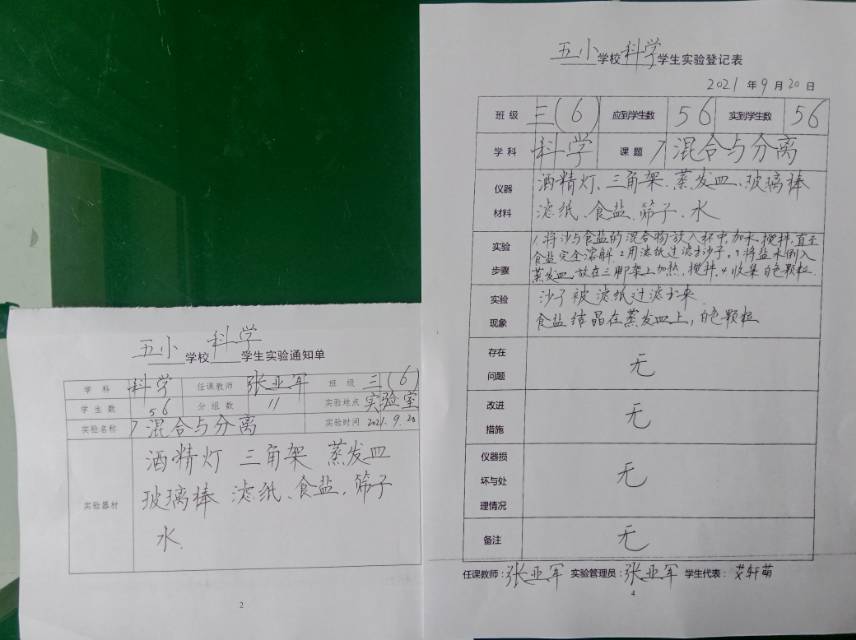 五小学校科学学生实验通知单
学科 科学 任课教师 张亚军 班级 三(6)
学生数 56 分组数 11 实验地点 实验室
实验名称 7 混合与分离 实验时间 2021.9.20
实验器材 酒精灯 三角架 蒸发皿
玻璃棒 滤纸、食盐、筛子
水
2
五小学校科学学生实验登记表
2021年9月20日
班级 三(6) 应到学生数 56 实到学生数 56
学科 科学 课题 7 混合与分离
仪器材料 酒精灯、三角架、蒸发皿、玻璃棒
滤纸、食盐、筛子、水
实验步骤 1将沙与食盐的混合物放入杯中,加水,搅拌,直至
食盐完全溶解.2用滤纸过滤出沙子.3将盐水倒入
蒸发皿,放在三脚架上加热,搅拌.4收集白色颗粒.
实验现象 沙子被滤纸过滤出来
食盐结晶在蒸发皿上,白色颗粒
存在问题 无
改进措施 无
仪器损坏与处理情况 无
备注 无
任课教师:张亚军 实验管理员:张亚军 学生代表:
4